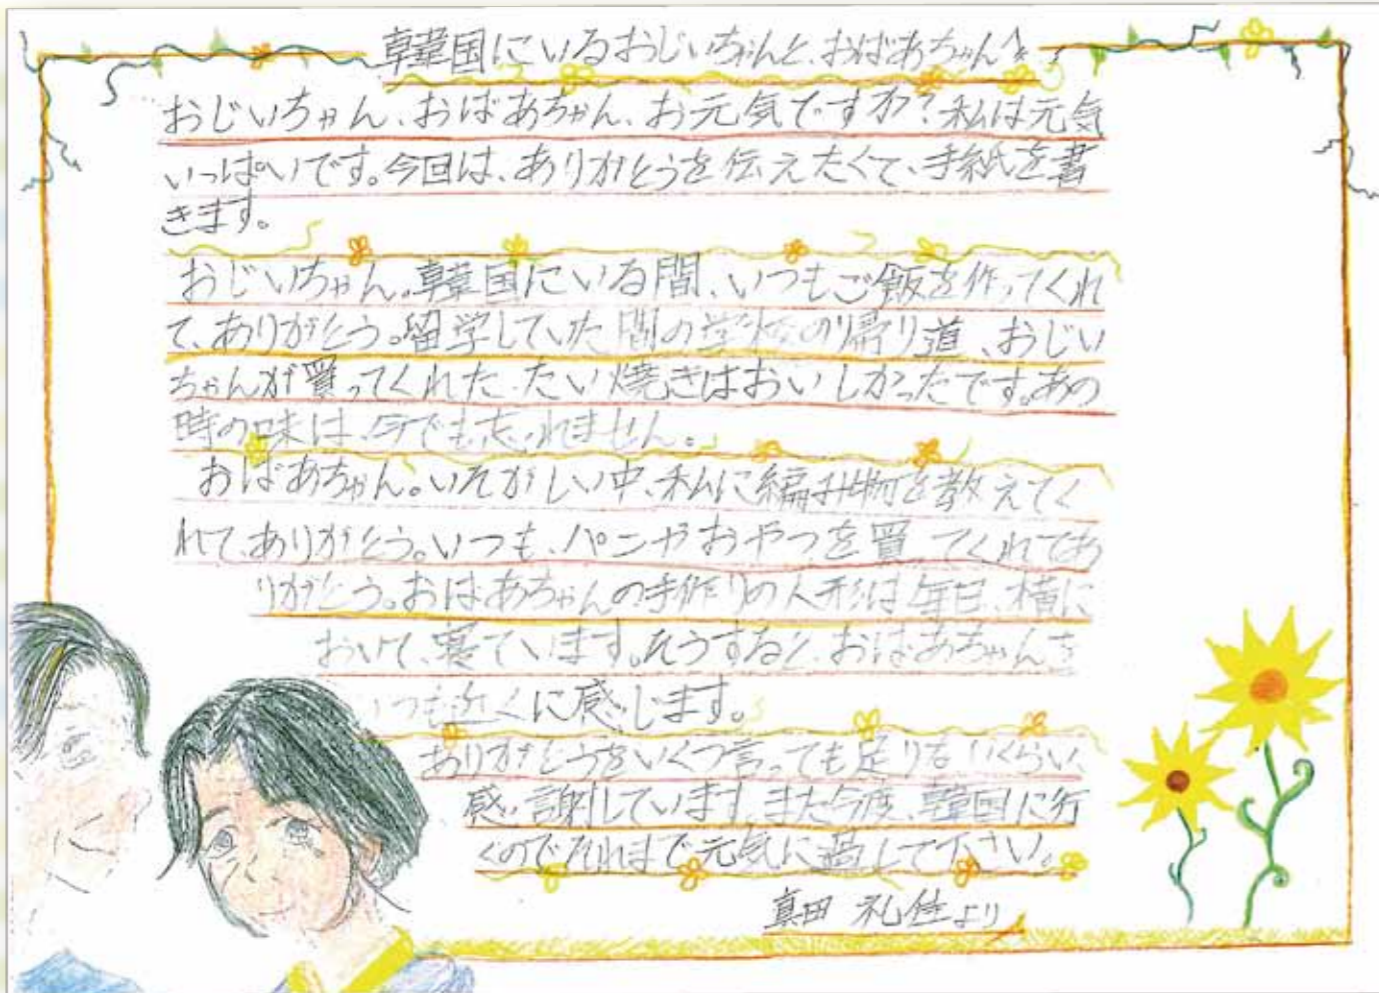 韓国にいるおじいちゃんと、おばあちゃんへ
おじいちゃん、おばあちゃん、お元気ですか?私は元気
いっぱいです。今回は、ありがとうを伝えたくて、手紙を書
きます。
おじいちゃん。韓国にいる間、いつもご飯を作ってくれ
て、ありがとう。留学していた間の学校の帰り道、おじい
ちゃんが買ってくれた、たい焼きはおいしかったです。あの
時の味は、今でも忘れません。
おばあちゃん。いそがしい中、私に編み物を教えてく
れて、ありがとう。いつも、パンやおやつを買てくれてあ
りがとう。おばあちゃんの手作りの人形は毎日、横に
おいて、寝ています。そうすると、おばあちゃんを
いつも近くに感じます。
ありがとうをいくつ言っても足りないくらい、
感謝しています。また今度、韓国に行
くのでそれまで元気に過して下さい。
真田 礼佳より